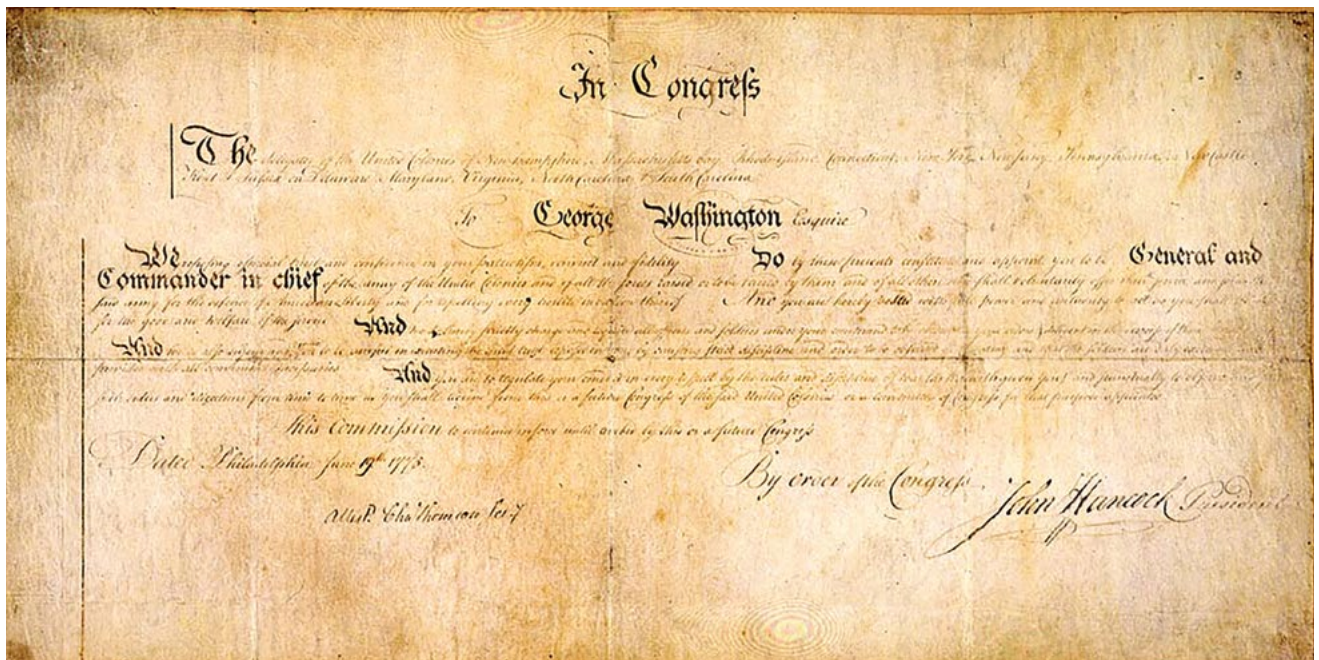 In Congress
The delegates of the United Colonies of New-hampshire, Massachusetts bay, Rhode-island, Connecticut, New-York, New-Jersey, Pennsylvania, New Castle
Kent & Sussex on Delaware, Maryland, Virginia, North Carolina & South Carolina
To George Washington Esquire
We reposing especial trust and confidence in your patriotism, conduct and fidelity Do by these presents constitute and appoint you to be General and
Commander in chief of the army of the United Colonies and of all the forces raised or to be raised by them and of all others who shall voluntarily offer their service and join the
said army for the defence of American liberty and for repelling every hostile invasion thereof And you are hereby vested with full power and authority to act as you shall
for the good and Welfare of the service And we do hereby strictly charge and require all officers and soldiers under your command to be obedient to your orders & diligent in the exercise of their
And we do also enjoin and require you to be careful in executing the great trust reposed in you, by causing strict discipline and order to be observed in the army and that the soldiers are duly exercised and
provided with all convenient necessaries And you are to regulate your conduct in every respect by the rules and discipline of war (as herewith given you) and punctually to observe and
orders and directions from time to time as you shall receive from this or a future Congress of the said United Colonies or a committee of Congress for that purpose appointed
This Commission to continue in force until revoked by this or a future Congress
Dated Philadelphia June 19th 1775.
By order of the Congress
John Hancock President
Attest. Cha Thomson Secy